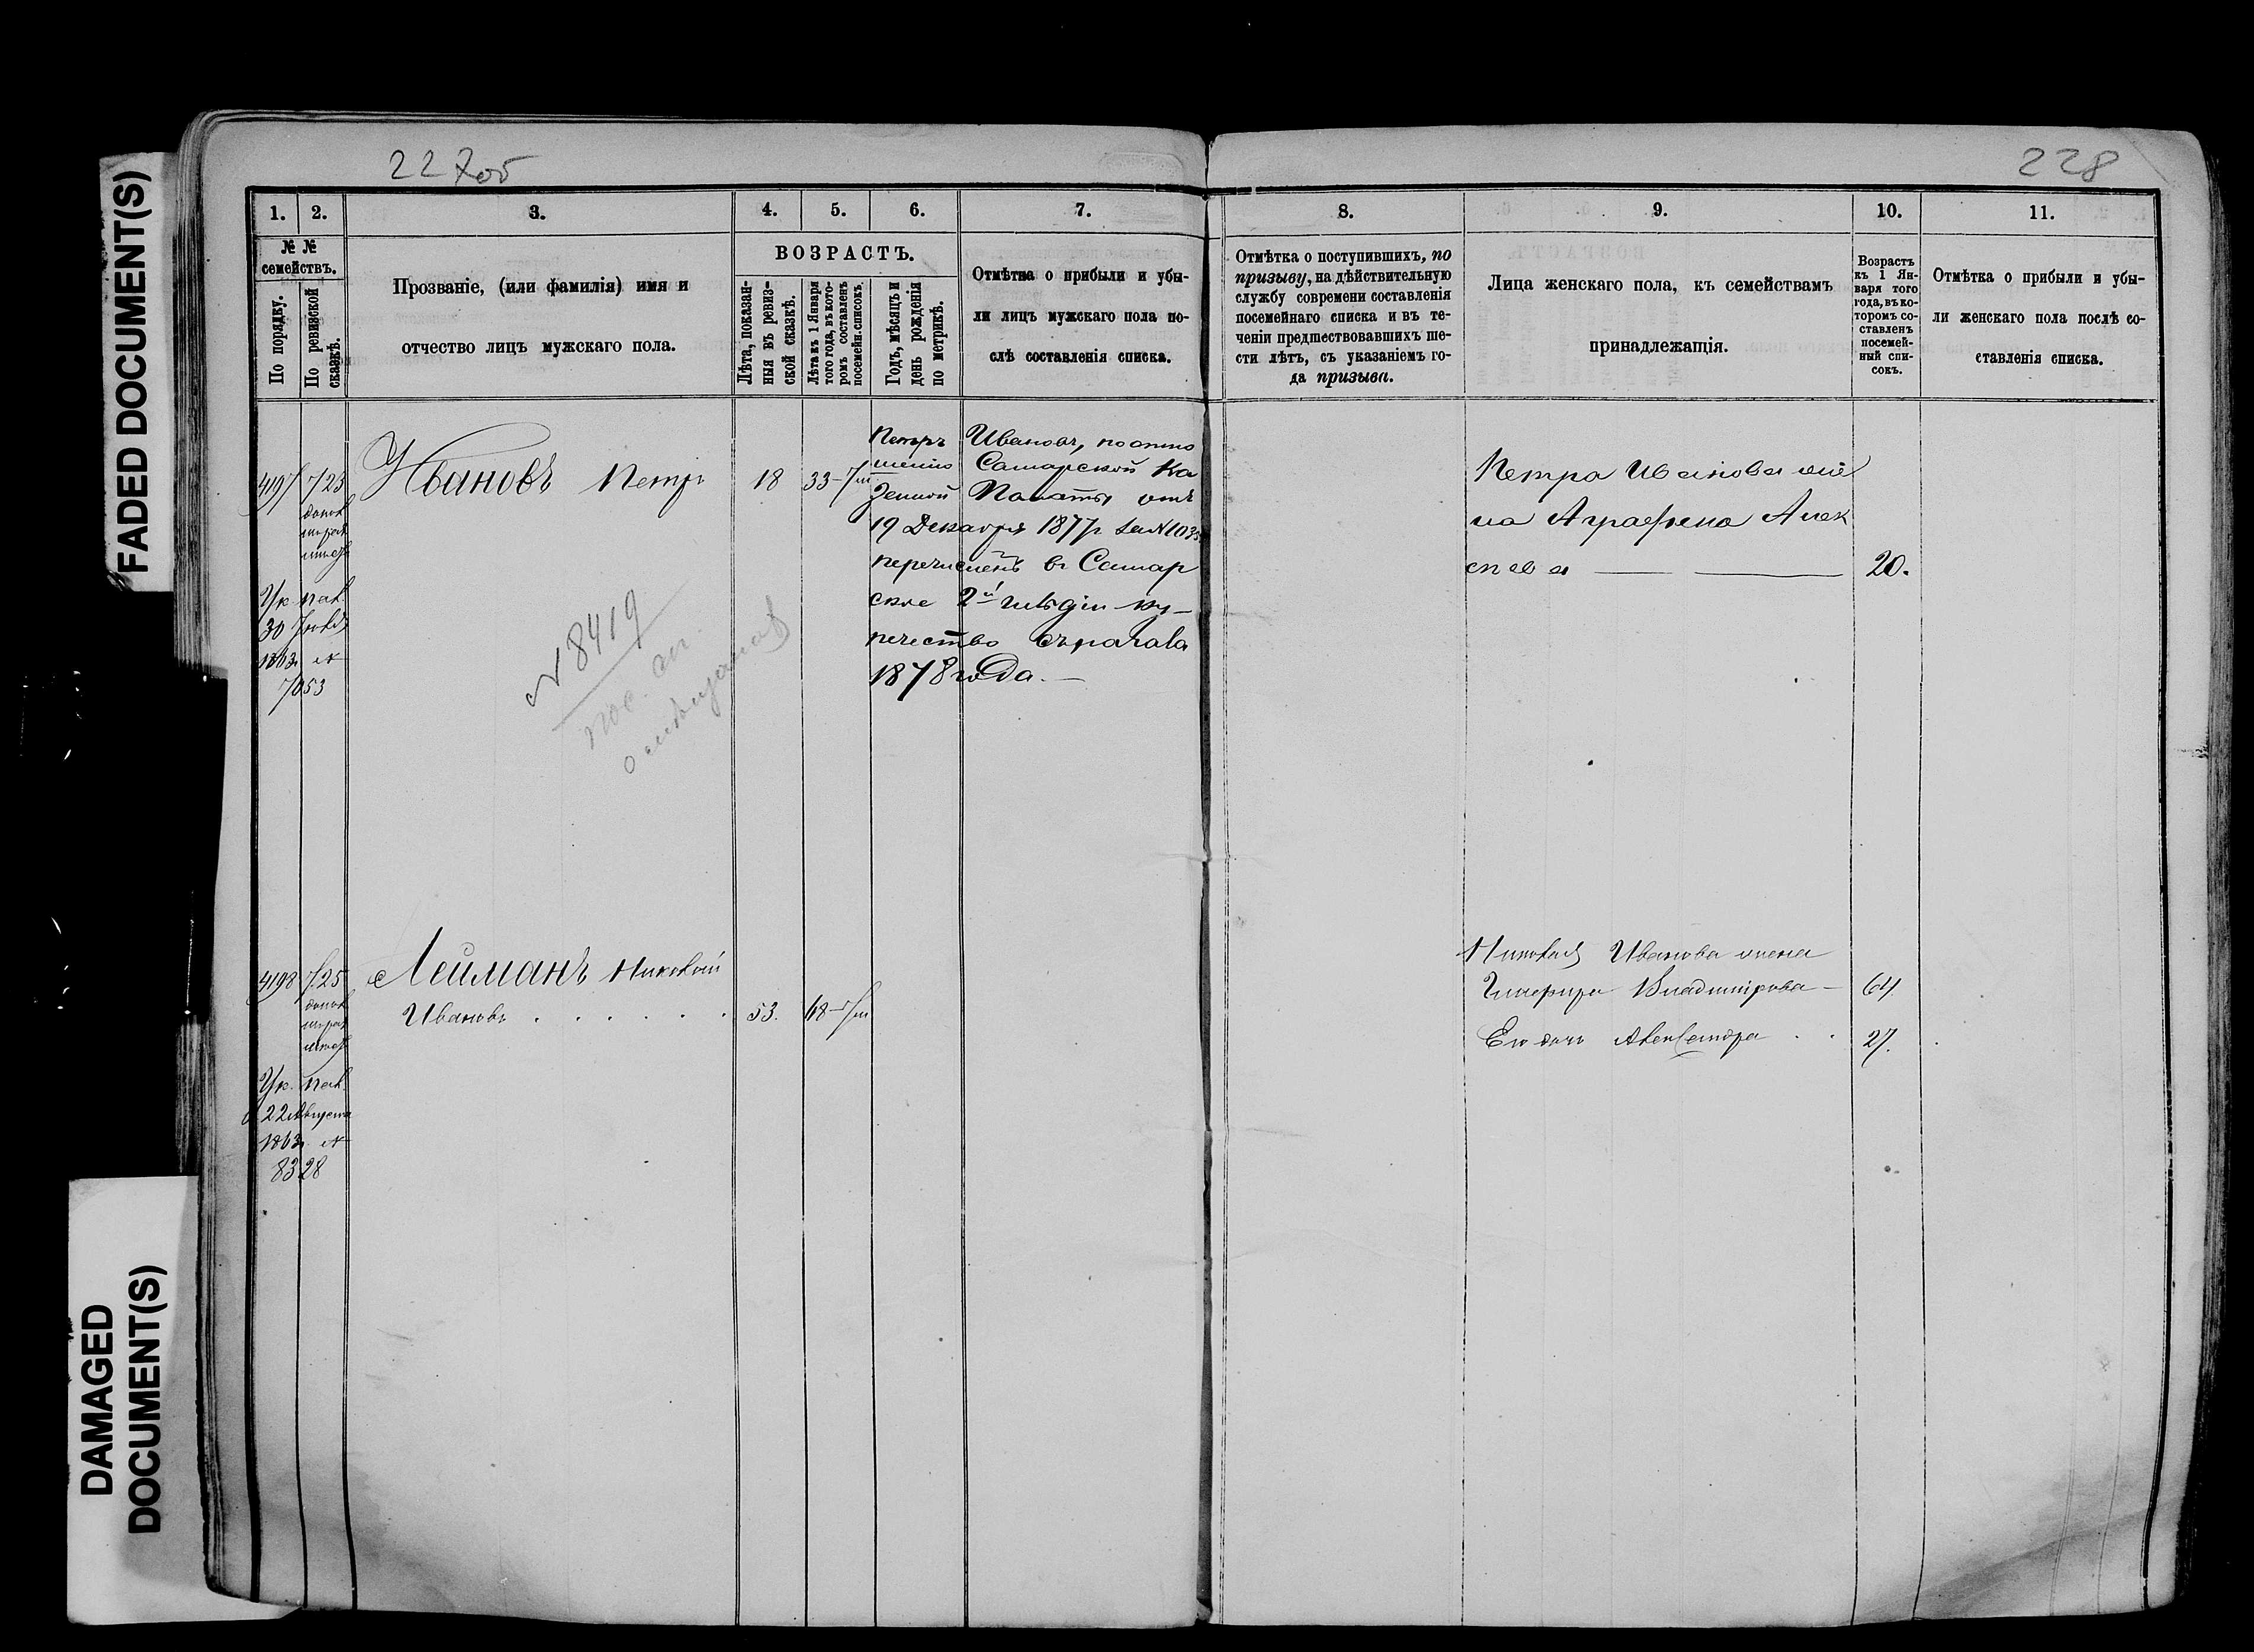 FADED DOCUMENT(S)
DAMAGED
DOCUMENT(S)
227об
228
1.
2.
3.
4.
5.
6.
7.
8.
9.
10.
11.
№ №
семействъ.
По порядку.
По ревизской
сказкѣ.
Прозваніе, (или фамилія) имя и
отчество лицъ мужскаго пола.
ВОЗРАСТЪ.
Лѣта, показан-
ныя въ ревиз-
ской сказкѣ.
Лѣта къ 1 Января
того года, въ кото-
ромъ составленъ
посемейн. списокъ.
Годъ, мѣсяцъ и
день рожденія
по метрикѣ.
Отмѣтка о прибыли и убы-
ли лицъ мужскаго пола по-
слѣ составленія списка.
Отмѣтка о поступившихъ, по
призыву, на дѣйствительную
службу современи составленія
посемейнаго списка и въ те-
ченіи предшествовавшихъ ше-
сти лѣтъ, съ указаніемъ го-
да призыва.
Лица женскаго пола, къ семействамъ
принадлежащія.
Возрастъ
къ 1 Ян-
варя того
года, въ ко-
торомъ со-
ставленъ
посемей-
ный спи-
сокъ.
Отмѣтка о прибыли и убы-
ли женскаго пола послѣ со-
ставленія списка.
4197
723
Ук. пал.
30
1863г. №
7053
Ивановъ Петръ
18
33
Петръ Ивановъ, по отно
шенію Самарской Ка
зенной Палаты отъ
19 Декабря 1877г за №
перечисленъ въ Самар
ское 2й гильдіи ку-
печество съ начала
1878 года. —
№ 8419
Петра Иванова же
на Аграфена Алек
сѣева
20.
4198
725
Ук. пал.
22 Августа
1863г. №
8328
Лейманъ Николай
Ивановъ . . . . . .
53.
68
Николая Иванова жена
Глафира Владимірова —
64.
Его дочь Александра . .
27.